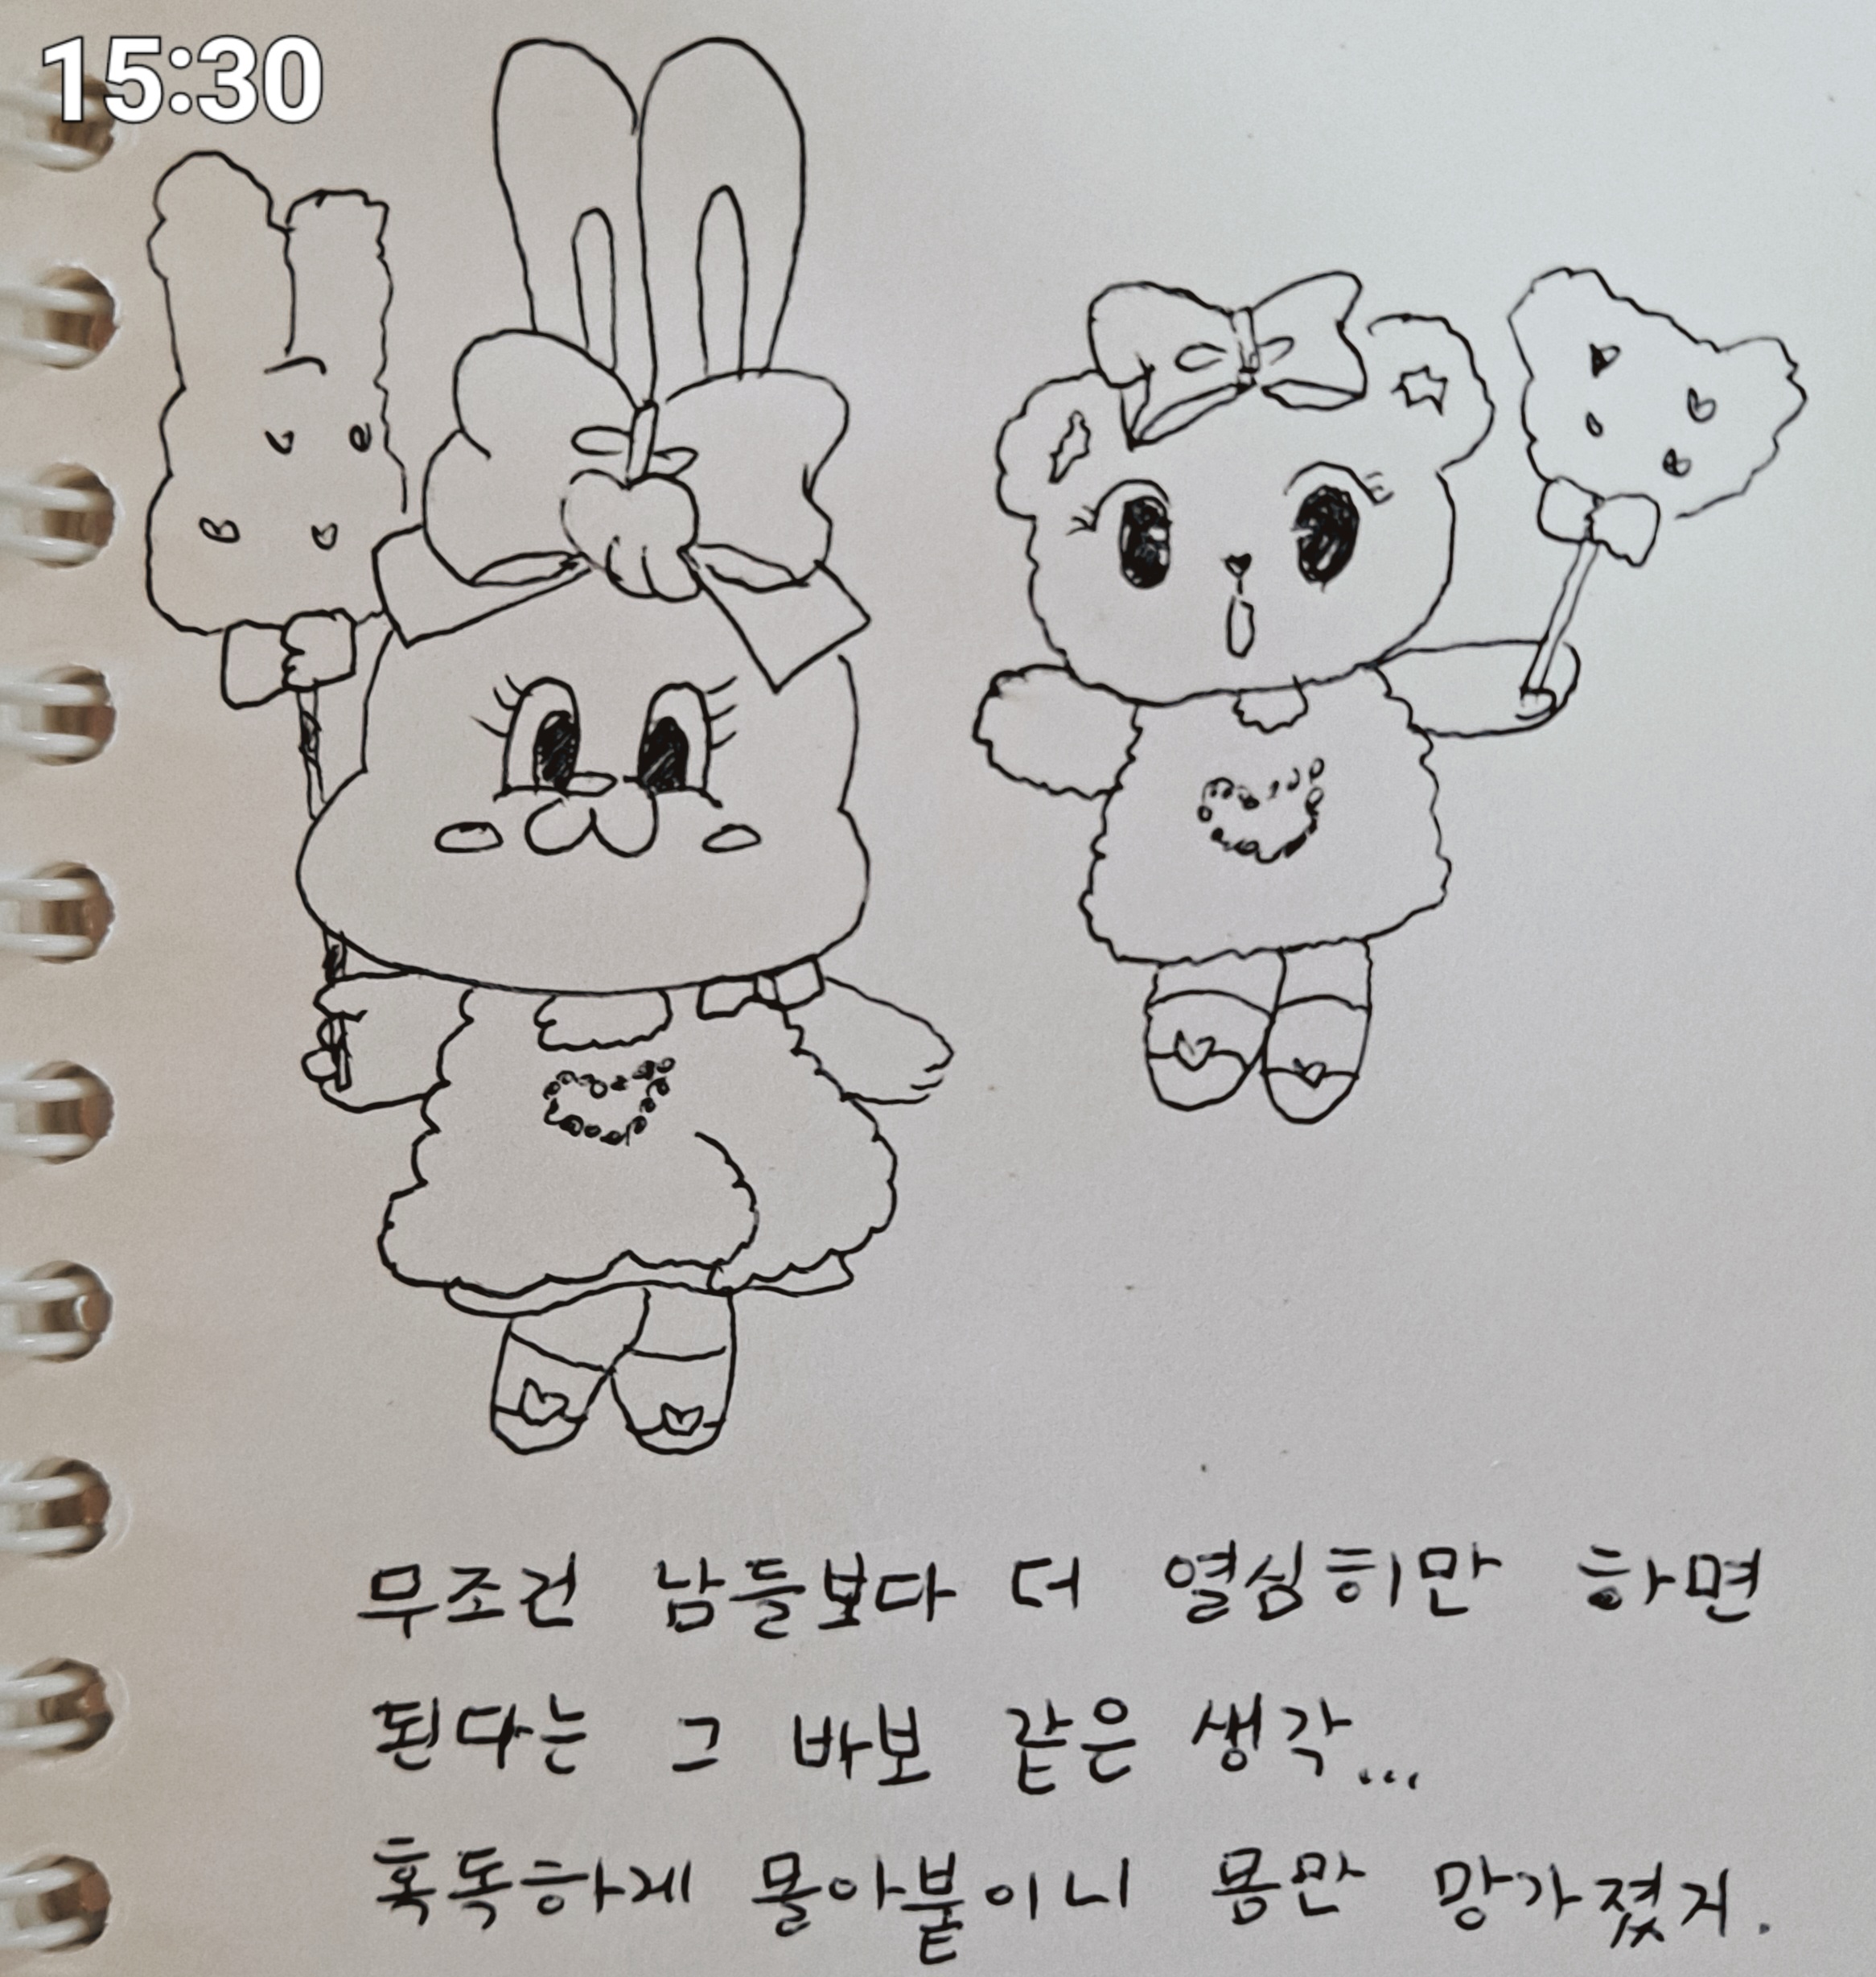 15:30
무조건 남들보다 더 열심히만 하면
된다는 그 바보 같은 생각...
혹독하게 몰아붙이니 몸만 망가졌지.